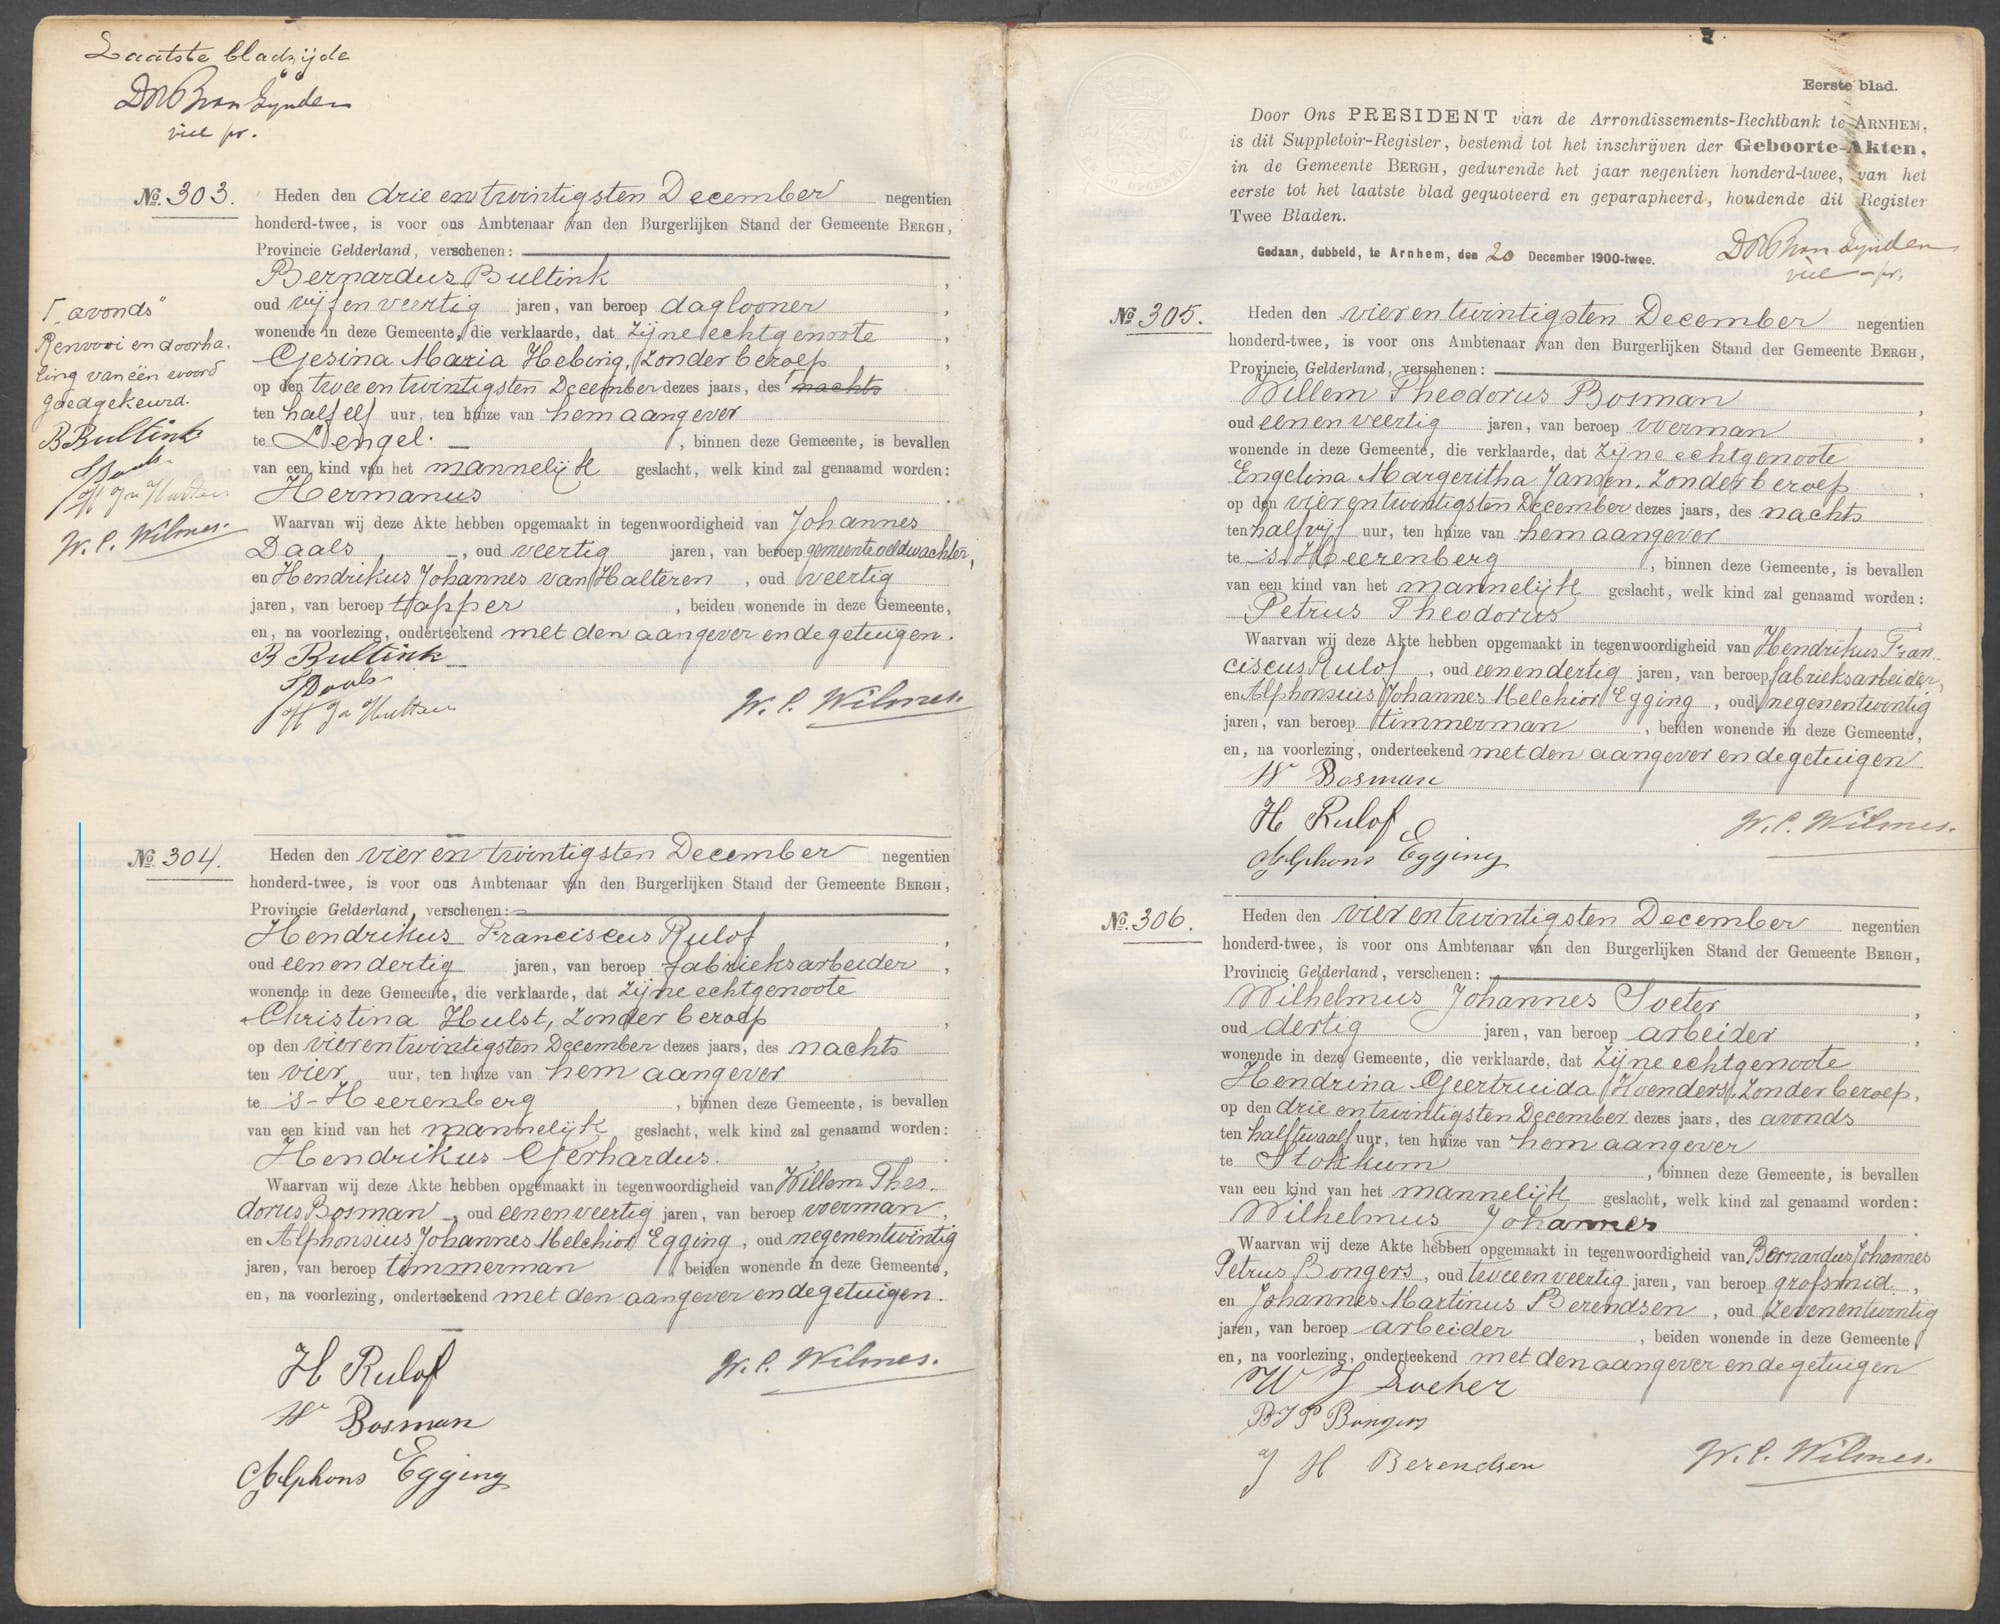 Laatste bladzijde
DWB van Lynden
vice pr.
No. 303.
Heden den drie en twintigsten December negentien
honderd-twee, is voor ons Ambtenaar van den Burgerlijken Stand der Gemeente BERGH,
Provincie Gelderland, verschenen:
Bernardus Bultink,
oud vijf en veertig jaren, van beroep daglooner,
wonende in deze Gemeente, die verklaarde, dat zijne echtgenoote
Gesina Maria Hebing, zonder beroep,
op den twee en twintigsten December dezes jaars, des nachts
ten half elf uur, ten huize van hem aangever
te Lengel. —, binnen deze Gemeente, is bevallen
van een kind van het mannelijk geslacht, welk kind zal genaamd worden:
Hermanus.
Waarvan wij deze Akte hebben opgemaakt in tegenwoordigheid van Johannes
Daals, —, oud veertig jaren, van beroep gemeenteveldwachter,
en Hendrikus Johannes van Halteren, oud veertig
jaren, van beroep tapper, beiden wonende in deze Gemeente,
en, na voorlezing, onderteekend met den aangever en de getuigen.
B Bultink
J Daals
W. C. Wilmes.
Γ „avonds”
Renvooi en doorha-
ling van één woord
goedgekeurd.
B Bultink
J Daals
W. C. Wilmes.
No. 304.
Heden den vier en twintigsten December negentien
honderd-twee, is voor ons Ambtenaar van den Burgerlijken Stand der Gemeente BERGH,
Provincie Gelderland, verschenen:
Hendrikus Franciscus Rulof,
oud een en dertig jaren, van beroep fabrieksarbeider,
wonende in deze Gemeente, die verklaarde, dat zijne echtgenoote
Christina Hulst, zonder beroep,
op den vier en twintigsten December dezes jaars, des nachts
ten vier uur, ten huize van hem aangever
te 's-Heerenberg, binnen deze Gemeente, is bevallen
van een kind van het mannelijk geslacht, welk kind zal genaamd worden:
Hendrikus Gerhardus.
Waarvan wij deze Akte hebben opgemaakt in tegenwoordigheid van Willem Theo-
dorus Bosman, oud een en veertig jaren, van beroep voerman,
en Alphonsius Johannes Melchior Egging, oud negen en twintig
jaren, van beroep timmerman, beiden wonende in deze Gemeente,
en, na voorlezing, onderteekend met den aangever en de getuigen.
H Rulof
W. C. Wilmes.
W Bosman
Alphons Egging
Eerste blad.
Door Ons PRESIDENT van de Arrondissements-Rechtbank te ARNHEM,
is dit Suppletoir-Register, bestemd tot het inschrijven der Geboorte-Akten,
in de Gemeente BERGH, gedurende het jaar negentien honderd-twee, van het
eerste tot het laatste blad gequoteerd en geparapheerd, houdende dit Register
Twee Bladen.
Gedaan, dubbeld, te Arnhem, den 20 December 1900-twee.
DWB van Lynden
vice-pr.
No. 305.
Heden den vier en twintigsten December negentien
honderd-twee, is voor ons Ambtenaar van den Burgerlijken Stand der Gemeente BERGH,
Provincie Gelderland, verschenen:
Willem Theodorus Bosman,
oud een en veertig jaren, van beroep voerman,
wonende in deze Gemeente, die verklaarde, dat zijne echtgenoote
Engelina Margeritha Jansen, zonder beroep,
op den vier en twintigsten December dezes jaars, des nachts
ten half vijf uur, ten huize van hem aangever
te 's Heerenberg, binnen deze Gemeente, is bevallen
van een kind van het mannelijk geslacht, welk kind zal genaamd worden:
Petrus Theodorus.
Waarvan wij deze Akte hebben opgemaakt in tegenwoordigheid van Hendrikus Fran-
ciscus Rulof, oud een en dertig jaren, van beroep fabrieksarbeider,
en Alphonsius Johannes Melchior Egging, oud negen en twintig
jaren, van beroep timmerman, beiden wonende in deze Gemeente,
en, na voorlezing, onderteekend met den aangever en de getuigen
W Bosman
H Rulof
W. C. Wilmes.
Alphons Egging
No. 306.
Heden den vier en twintigsten December negentien
honderd-twee, is voor ons Ambtenaar van den Burgerlijken Stand der Gemeente BERGH,
Provincie Gelderland, verschenen:
Wilhelmus Johannes Soeter,
oud dertig jaren, van beroep arbeider,
wonende in deze Gemeente, die verklaarde, dat zijne echtgenoote
Hendrina Geertruida Koenders, zonder beroep,
op den drie en twintigsten December dezes jaars, des avonds
ten half twaalf uur, ten huize van hem aangever
te Stokkum, binnen deze Gemeente, is bevallen
van een kind van het mannelijk geslacht, welk kind zal genaamd worden:
Wilhelmus Johannes
Waarvan wij deze Akte hebben opgemaakt in tegenwoordigheid van Bernardus Johannes
Petrus Bongers, oud twee en veertig jaren, van beroep grofsmid,
en Johannes Martinus Berendsen, oud zeven en twintig
jaren, van beroep arbeider, beiden wonende in deze Gemeente,
en, na voorlezing, onderteekend met den aangever en de getuigen
W J
B J P Bongers
J M Berendsen
W. C. Wilmes.